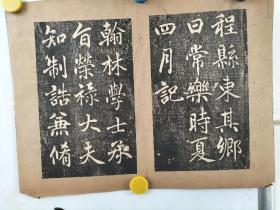 程縣東其鄉
曰常樂時夏
四月記
翰林學士承
旨榮祿大夫
知制誥兼脩